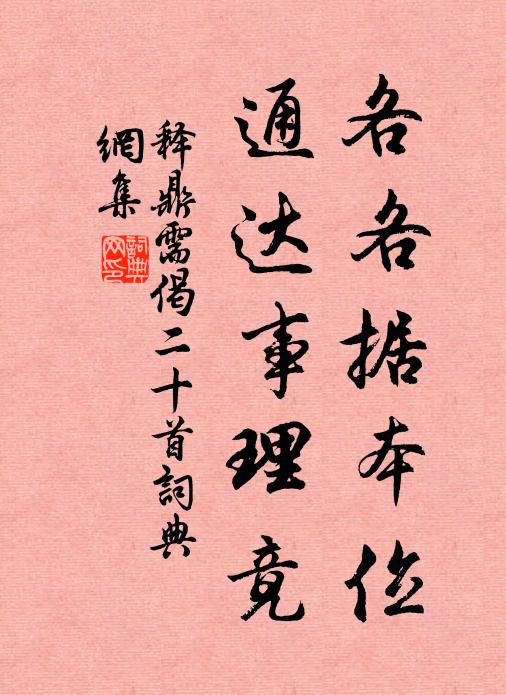 各各据本位
通达事理竟
释鼎需偈二十首詞典
網集
詞典网印